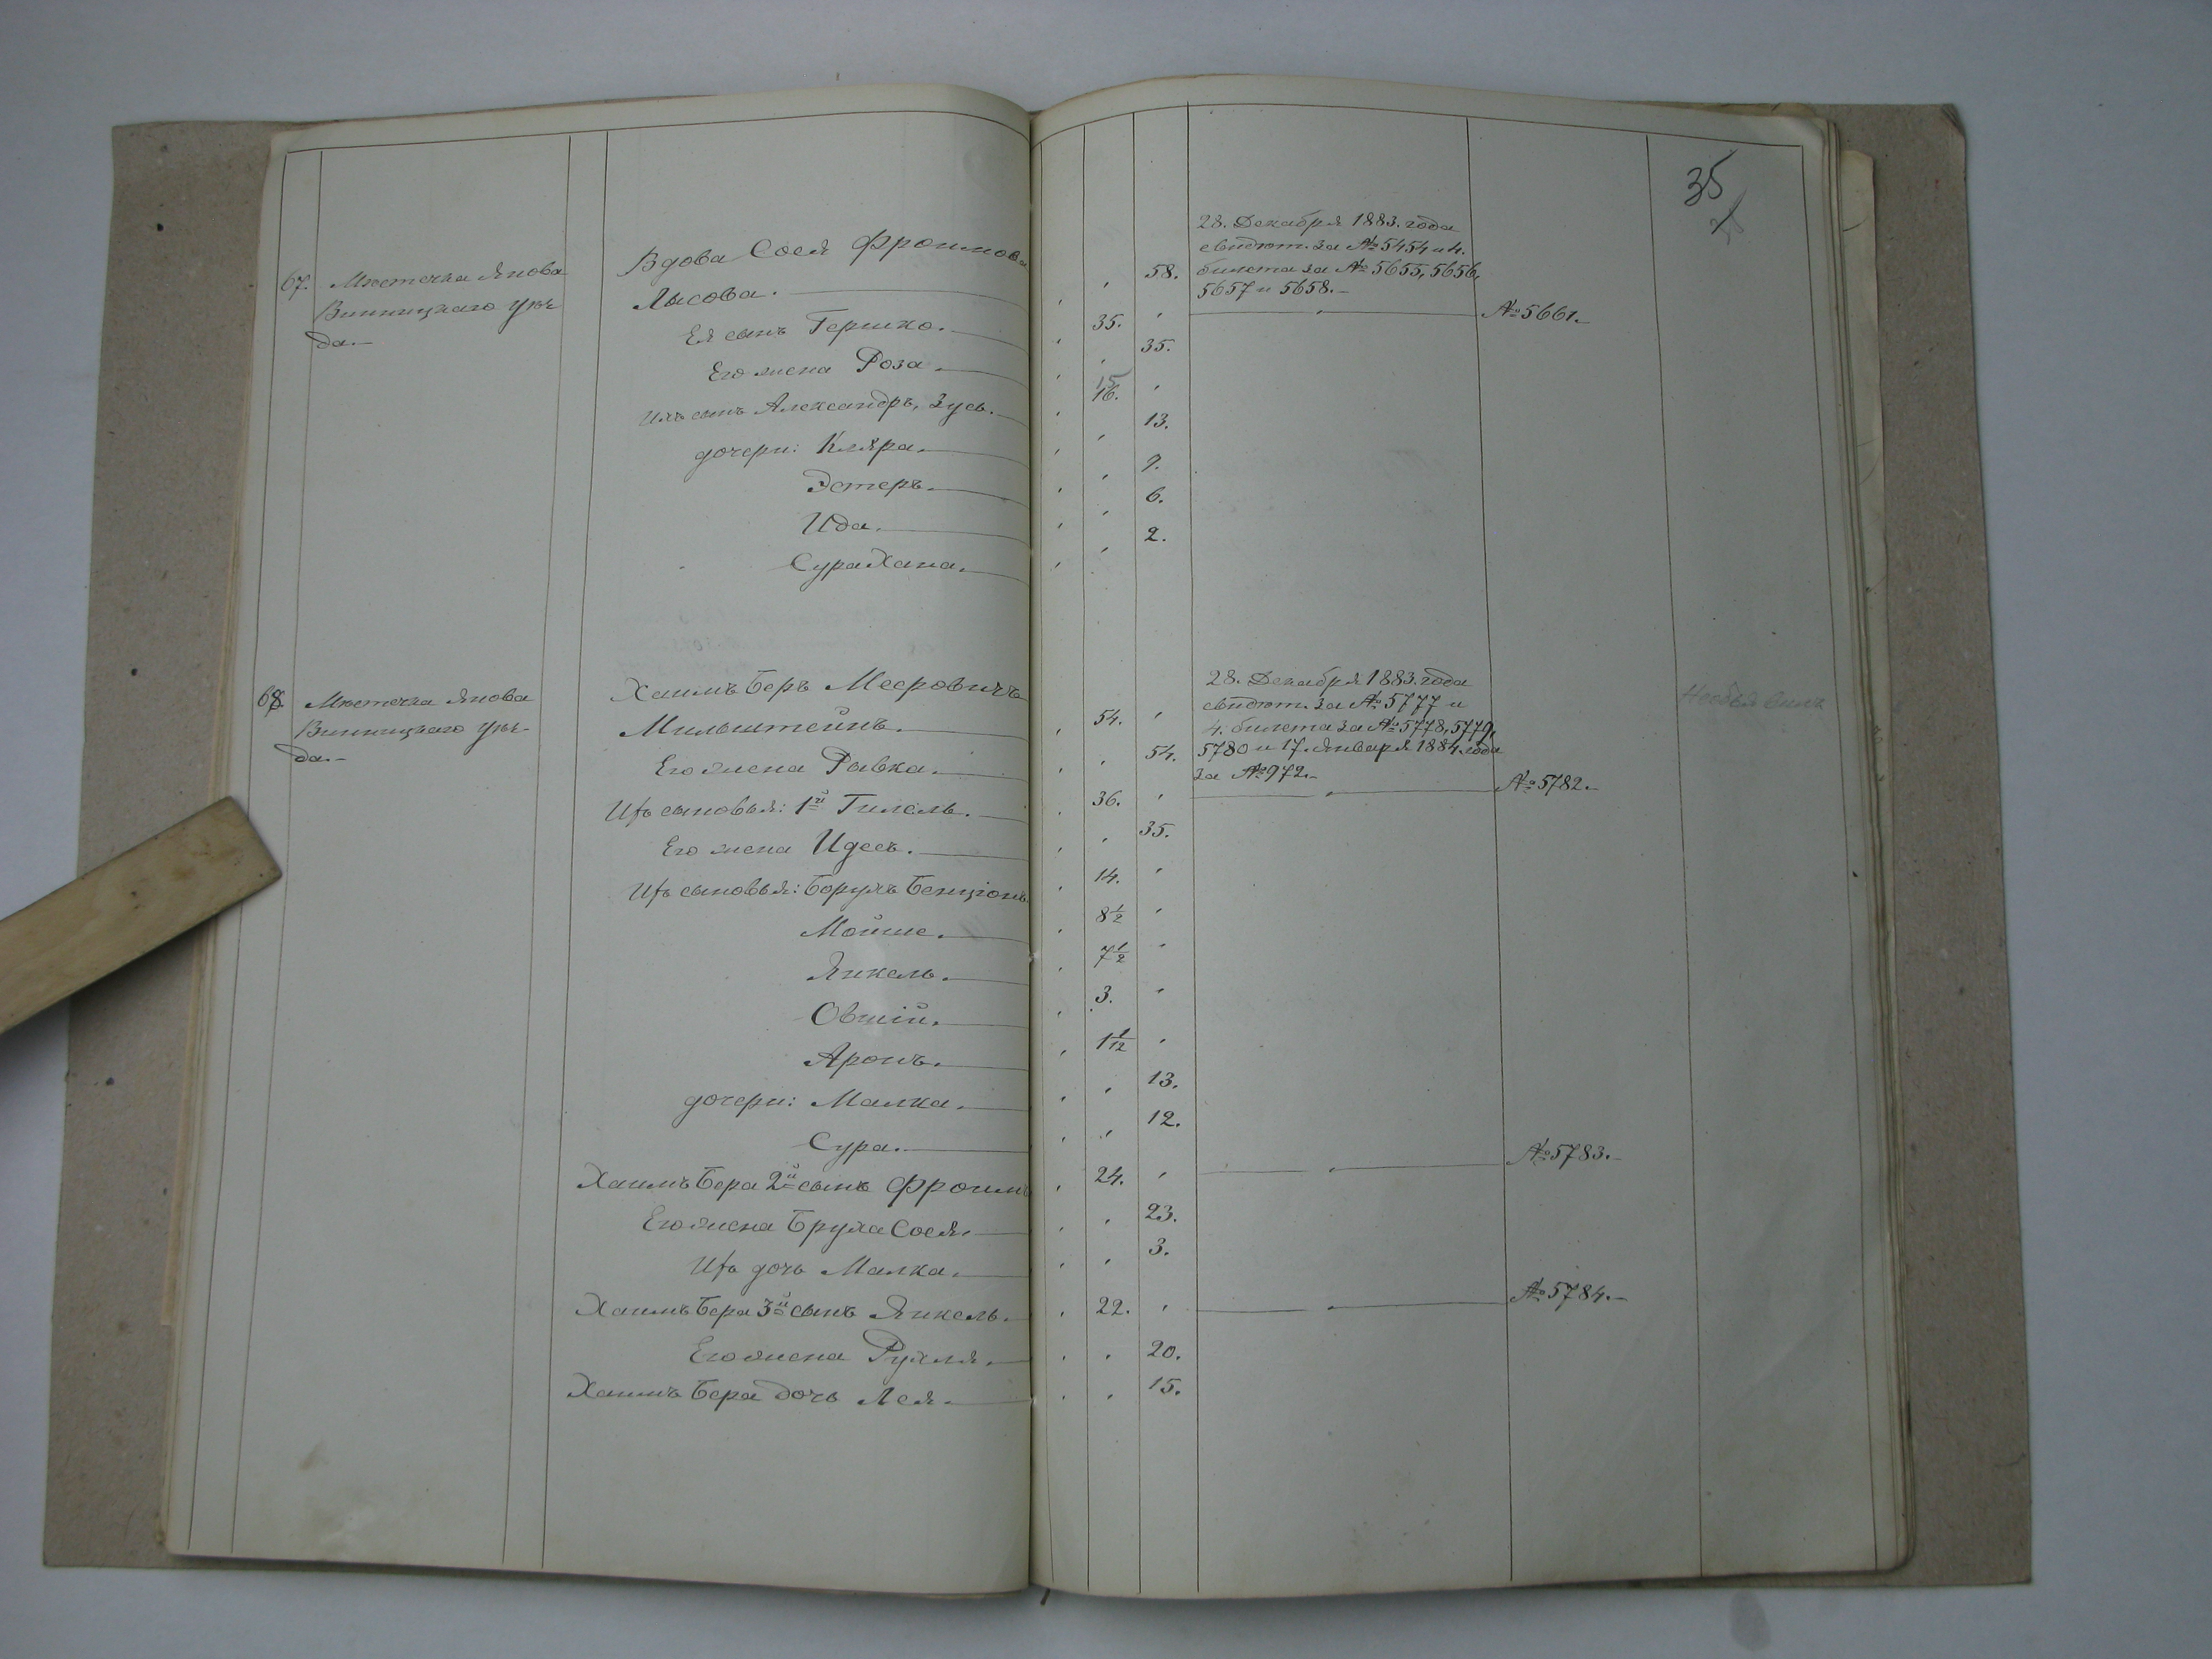 35
67. Мѣстечка Янова
Винницкаго уѣз-
да.–
Вдова Сося Фроимова
Лысова. 58.
28. Декабря 1883. года
свидѣт. за № 5454 и 4.
билета за № 5655, 5656,
5657 и 5658.–
Ея сынъ Гершко. 35. № 5661.–
Его жена Роза. 35.
Ихъ сынъ Александръ, Зусь. 15 16.
дочери: Кляра. 13.
Эстеръ. 9.
Ида. 6.
Сура Хана. 2.
68. Мѣстечка Янова
Винницкаго уѣз-
да.–
Хаимъ Беръ Мееровичъ
Мильштейнъ. 54.
Его жена Ривка. 54.
28. Декабря 1883. года
свидѣт. за № 5777 и
4. билета за № 5778, 5779,
5780 и 17. Января 1884. года
за № 972.–
Ихъ сыновья: 1й Гилель. 36. № 5782.–
Его жена Идесъ. 35.
Ихъ сыновья: Борухъ Бенціонъ 14.
Мойше. 8 1/2
Янкель. 7 1/2
Овшій. 3.
Аронъ. 1 1/12
дочери: Малка. 13.
Сура. 12.
Хаимъ Бера 2й сынъ Фроимъ 24. № 5783.–
Его жена Бруха Сося. 23.
Ихъ дочь Малка. 3.
Хаимъ Бера 3й сынъ Янкель. 22. № 5784.–
Его жена Рухля. 20.
Хаимъ Бера дочь Лея. 15.